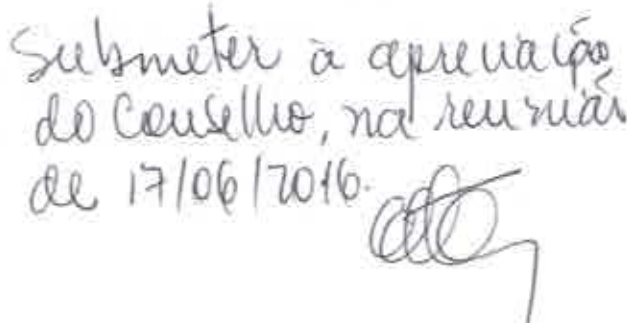 Submeter à apreciação
do Conselho, na reunião
de 17/06/2016.